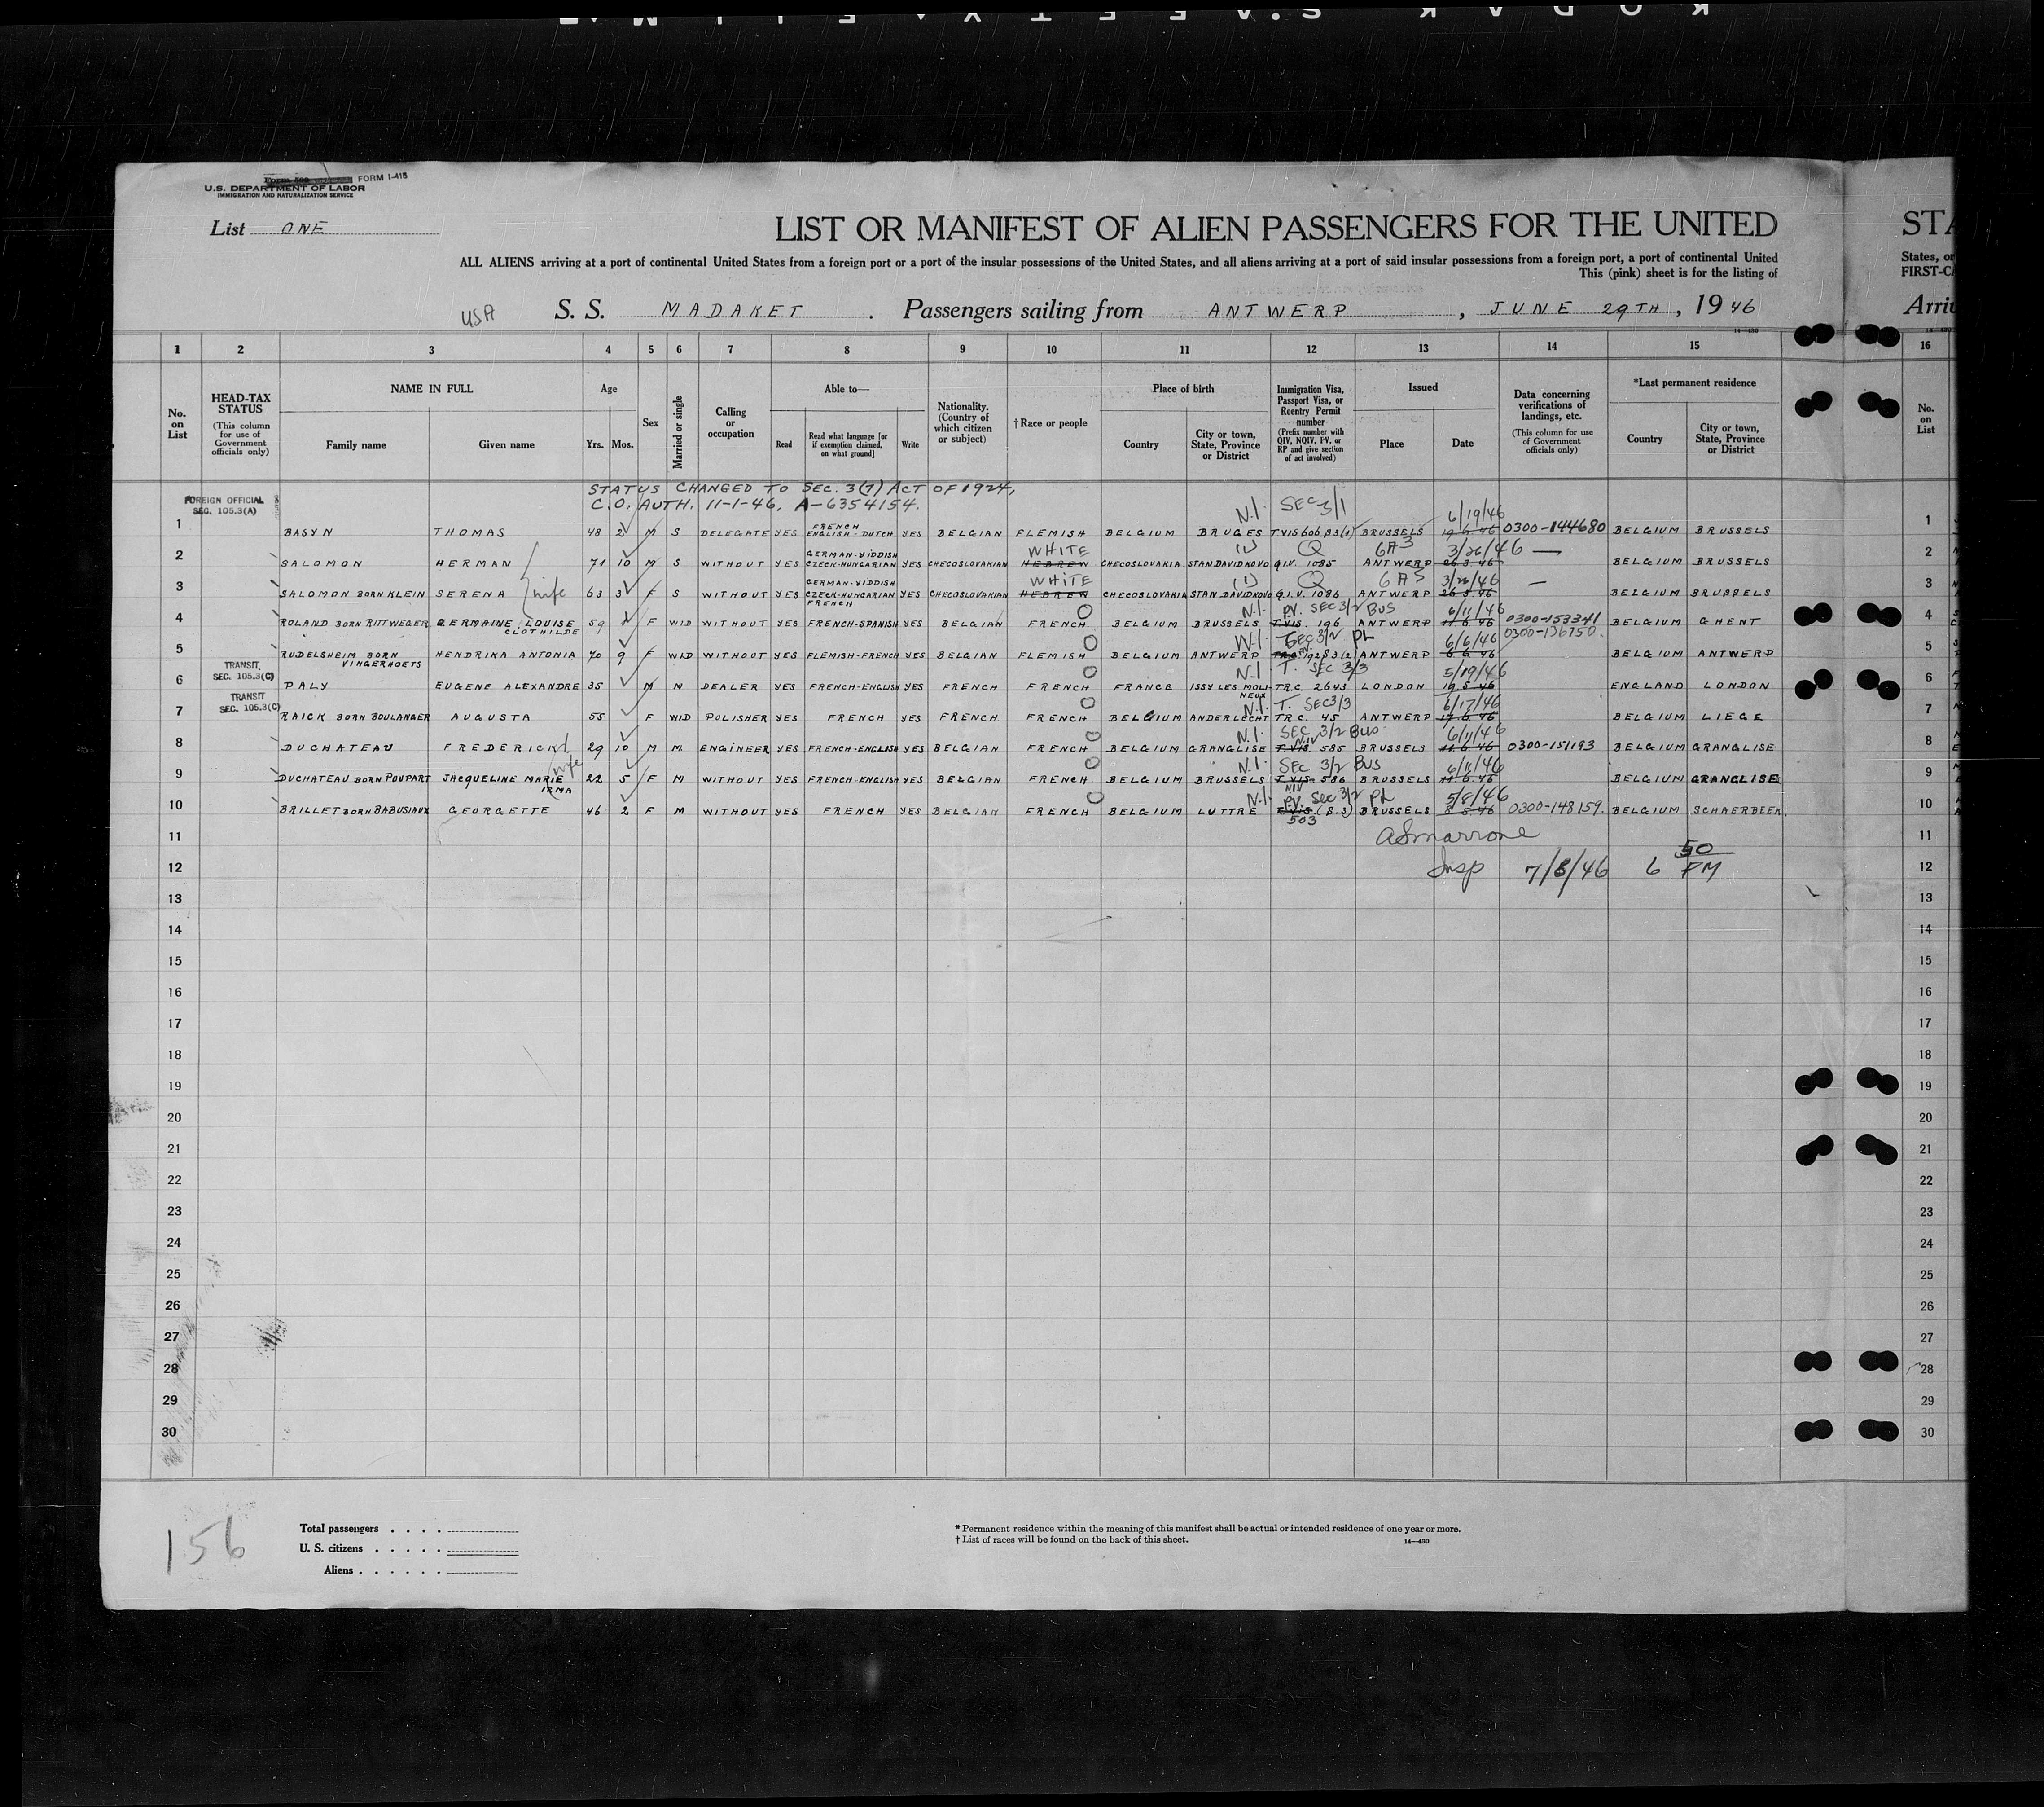 KODAK S.AFETY FILM
Form 500 FORM I-415
U.S. DEPARTMENT OF LABOR
IMMIGRATION AND NATURALIZATION SERVICE
List ONE
LIST OR MANIFEST OF ALIEN PASSENGERS FOR THE UNITED STA
ALL ALIENS arriving at a port of continental United States from a foreign port or a port of the insular possessions of the United States, and all aliens arriving at a port of said insular possessions from a foreign port, a port of continental United States, or
This (pink) sheet is for the listing of FIRST-CA
USA S. S. MADAKET . Passengers sailing from ANTWERP , JUNE 29TH , 19 46 Arri
14—430
1 2 3 4 5 6 7 8 9 10 11 12 13 14 15 16
No. on List
HEAD-TAX STATUS (This column for use of Government officials only)
NAME IN FULL
Family name Given name
Age
Yrs. Mos.
Sex
Married or single
Calling or occupation
Able to—
Read Read what language [or if exemption claimed, on what ground] Write
Nationality. (Country of which citizen or subject)
† Race or people
Place of birth
Country City or town, State, Province or District
Immigration Visa, Passport Visa, or Reentry Permit number (Prefix number with QIV, NQIV, PV, or RP and give section of act involved)
Issued
Place Date
Data concerning verifications of landings, etc. (This column for use of Government officials only)
*Last permanent residence
Country City or town, State, Province or District
No. on List
STATUS CHANGED TO SEC. 3(7) ACT OF 1924,
C.O. AUTH. 11-1-46, A-6354154.
FOREIGN OFFICIAL SEC. 105.3(A)
N.I. SEC 3/1 6/19/46
1 BASYN THOMAS 48 2 M S DELEGATE YES FRENCH ENGLISH-DUTCH YES BELGIAN FLEMISH BELGIUM BRUGES T.VIS 606 B3(1) BRUSSELS 19.6.46 0300-144680 BELGIUM BRUSSELS 1
WHITE (1) Q 6A3 3/26/46 —
2 SALOMON HERMAN 71 10 M S WITHOUT YES GERMAN-YIDDISH CZECK-HUNGARIAN YES CHECOSLOVAKIAN HEBREW CHECOSLOVAKIA STANDAVIDKOVO Q.I.V. 1085 ANTWERP 26.3.46 BELGIUM BRUSSELS 2
WHITE (1) Q 6A3 3/26/46 —
3 SALOMON BORN KLEIN SERENA wife 63 3 F S WITHOUT YES GERMAN-YIDDISH CZECK-HUNGARIAN FRENCH YES CHECOSLOVAKIAN HEBREW CHECOSLOVAKIA STANDAVIDKOVO Q.I.V. 1086 ANTWERP 26.3.46 BELGIUM BRUSSELS 3
N.I. PV. SEC 3/2 BUS 6/11/46
4 ROLAND BORN RITTWEGER GERMAINE LOUISE CLOTHILDE 59 F WID WITHOUT YES FRENCH-SPANISH YES BELGIAN FRENCH BELGIUM BRUSSELS T.VIS. 196 ANTWERP 11.6.46 0300-153341 BELGIUM GHENT 4
N.I. SEC 3/2 PL 6/6/46 0300-136750.
5 RUDELSHEIM BORN VINGERHOETS HENDRIKA ANTONIA 70 9 F WID WITHOUT YES FLEMISH-FRENCH YES BELGIAN FLEMISH BELGIUM ANTWERP 1928 3(2) ANTWERP 6.6.46 BELGIUM ANTWERP 5
TRANSIT, SEC. 105.3(C)
N.I. T. SEC 3/3 5/19/46
6 PALY EUGENE ALEXANDRE 35 M N DEALER YES FRENCH-ENGLISH YES FRENCH FRENCH FRANCE ISSY LES MOLINEUX TR.C. 2643 LONDON 19.5.46 ENGLAND LONDON 6
TRANSIT SEC. 105.3(C)
N.I. T. SEC 3/3 6/17/46
7 RAICK BORN BOULANGER AUGUSTA 55 F WID POLISHER YES FRENCH YES FRENCH FRENCH BELGIUM ANDERLECHT TR C. 45 ANTWERP 17.6.46 BELGIUM LIEGE 7
N.I. SEC 3/2 BUS 6/11/46
8 DUCHATEAU FREDERICK 29 10 M M. ENGINEER YES FRENCH-ENGLISH YES BELGIAN FRENCH BELGIUM GRANGLISE T.VIS. NIV 585 BRUSSELS 11.6.46 0300-151193 BELGIUM GRANGLISE 8
N.I. SEC 3/2 BUS 6/11/46
9 DUCHATEAU BORN POUPART JACQUELINE MARIE IRMA wife 22 5 F M WITHOUT YES FRENCH-ENGLISH YES BELGIAN FRENCH BELGIUM BRUSSELS T.VIS. NIV 586 BRUSSELS 11.6.46 BELGIUM GRANGLISE 9
N.I. PV. SEC 3/2 PL 5/8/46
10 BRILLET BORN BABUSIAUX GEORGETTE 46 2 F M WITHOUT YES FRENCH YES BELGIAN FRENCH BELGIUM LUTTRE (B.3) 503 BRUSSELS 8.5.46 0300-148159. BELGIUM SCHAERBEEK 10
11 ASmarrone 11
12 Insp 7/8/46 6 50 PM 12
13 13
14 14
15 15
16 16
17 17
18 18
19 19
20 20
21 21
22 22
23 23
24 24
25 25
26 26
27 27
28 28
29 29
30 30
156
Total passengers . . . .
U. S. citizens . . . . .
Aliens . . . . . .
* Permanent residence within the meaning of this manifest shall be actual or intended residence of one year or more.
† List of races will be found on the back of this sheet. 14—430